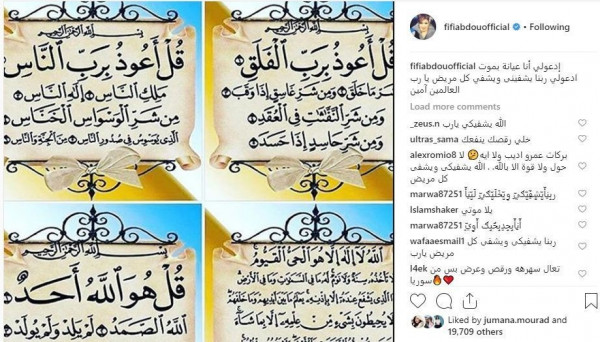 بسم الله الرحمن الرحيم
قُلْ أَعُوذُ بِرَبِّ الْفَلَقِ
مِن شَرِّ مَا خَلَقَ وَمِن شَرِّ غَاسِقٍ إِذَا وَقَبَ
وَمِن شَرِّ النَّفَّاثَاتِ فِي الْعُقَدِ
وَمِن شَرِّ حَاسِدٍ إِذَا حَسَدَ
بسم الله الرحمن الرحيم
قُلْ أَعُوذُ بِرَبِّ النَّاسِ
مَلِكِ النَّاسِ إِلَهِ النَّاسِ
مِن شَرِّ الْوَسْوَاسِ الْخَنَّاسِ
الَّذِي يُوَسْوِسُ فِي صُدُورِ النَّاسِ مِنَ الْجِنَّةِ وَالنَّاسِ
اللَّهُ لَا إِلَهَ إِلَّا هُوَ الْحَيُّ الْقَيُّومُ
لَا تَأْخُذُهُ سِنَةٌ وَلَا نَوْمٌ لَهُ مَا فِي السَّمَاوَاتِ وَمَا فِي الْأَرْضِ
مَن ذَا الَّذِي يَشْفَعُ عِندَهُ إِلَّا بِإِذْنِهِ يَعْلَمُ مَا بَيْنَ أَيْدِيهِمْ وَمَا خَلْفَهُمْ
وَلَا يُحِيطُونَ بِشَيْءٍ مِّنْ عِلْمِهِ إِلَّا بِمَا شَاءَ
بسم الله الرحمن الرحيم
قُلْ هُوَ اللَّهُ أَحَدٌ
اللَّهُ الصَّمَدُ لَمْ يَلِدْ وَلَمْ يُولَدْ
fifiabdouofficial • Following
fifiabdouofficial إدعولي أنا عيانة بموت
ادعولي ربنا يشفيني ويشفي كل مريض يا رب
العالمين آمين
Load more comments
_zeus.n الله يشفيكي يارب
ultras_sama خلي رقصك ينفعك
alexromio8 بركات عمرو اديب ولا ايه 🤔 لا
حول ولا قوة الا بالله.. الله يشفيكي ويشفى
كل مريض
marwa87251
Islamshaker يلا موتي
marwa87251
wafaaesmail1 ربنا يشفيكي ويشفى كل
مريض يارب
l4ek تعال سهرهه ورقص وعرض بس من
سوريا🔥❤️
Liked by jumana.mourad and
19,709 others